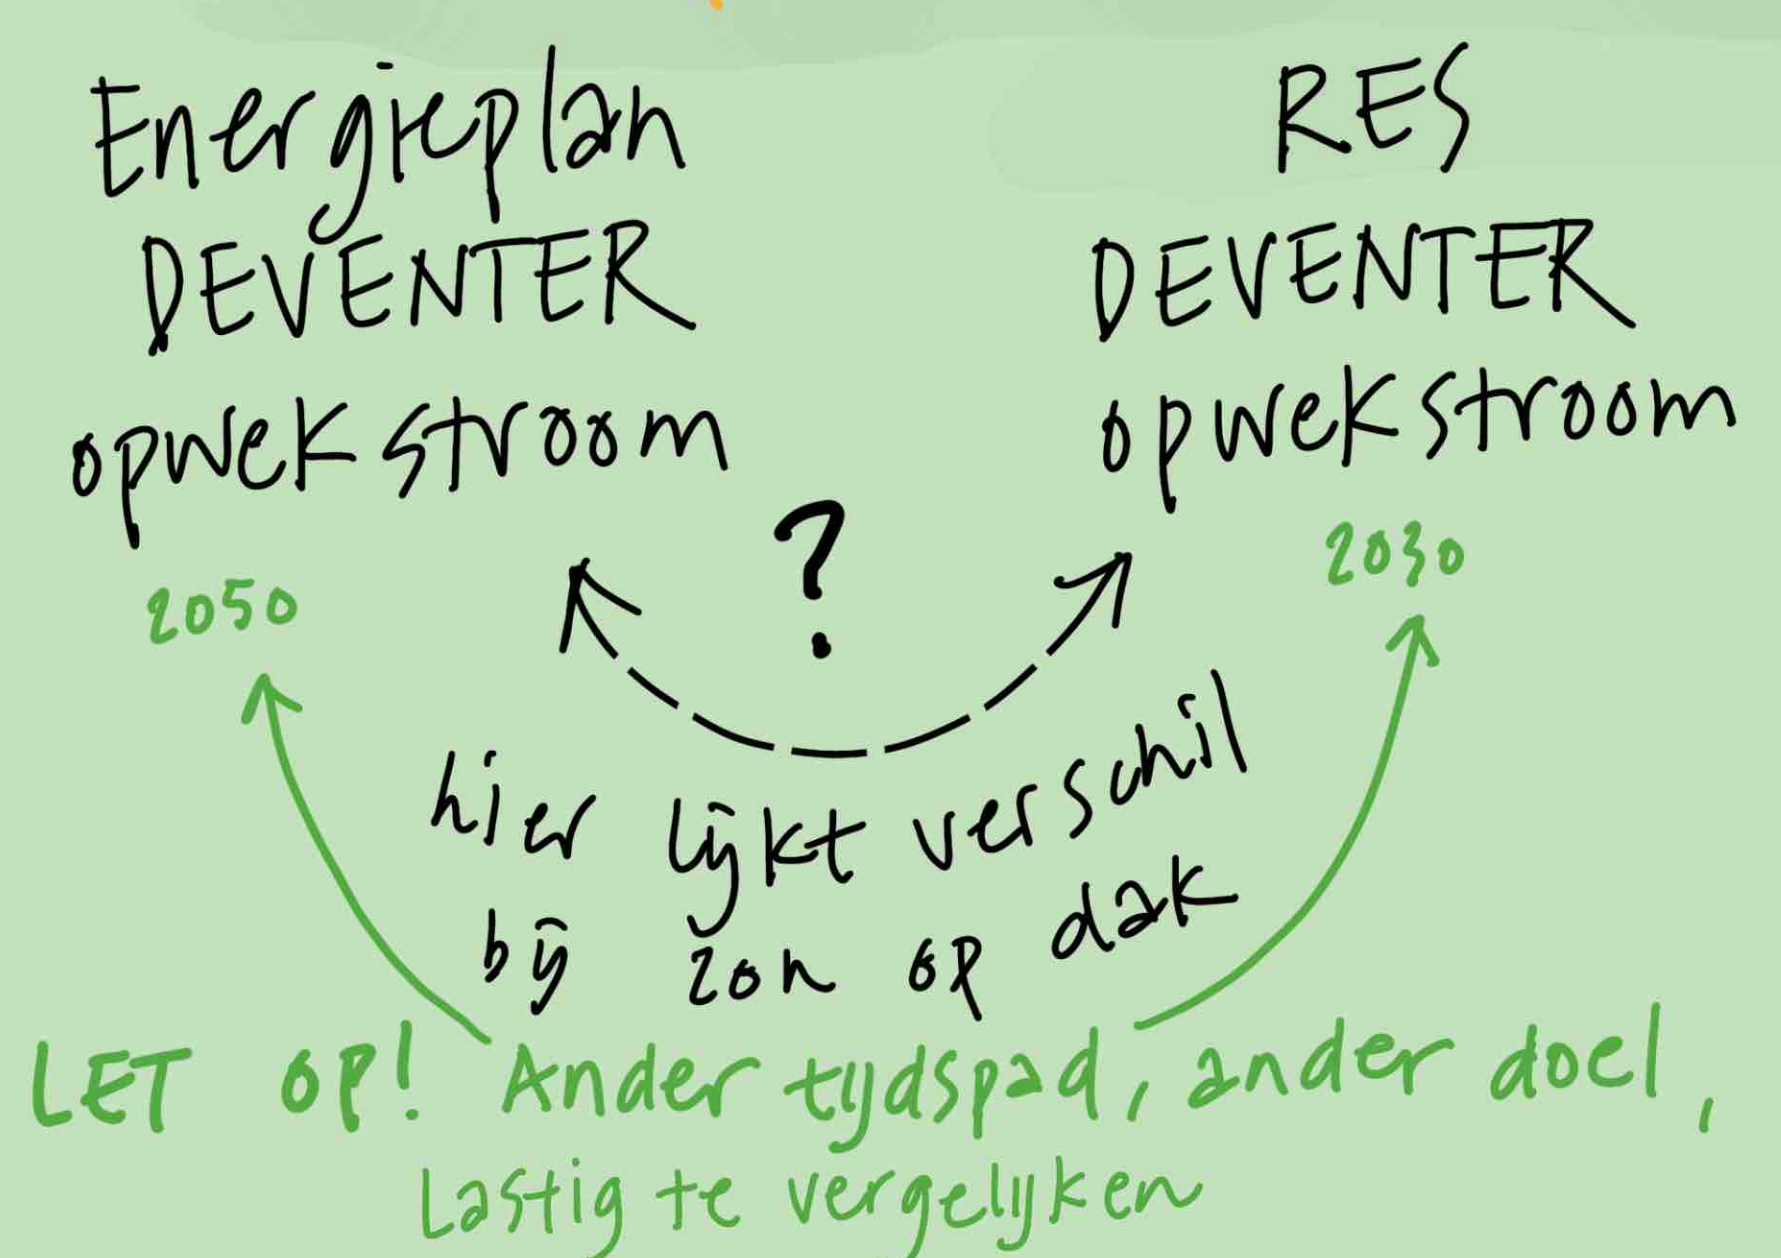 Energieplan
DEVENTER
opwekstroom
2050
RES
DEVENTER
opwekstroom
2030
?
hier lijkt verschil
bij zon op dak
LET OP! Ander tijdspad, ander doel,
Lastig te vergelijken